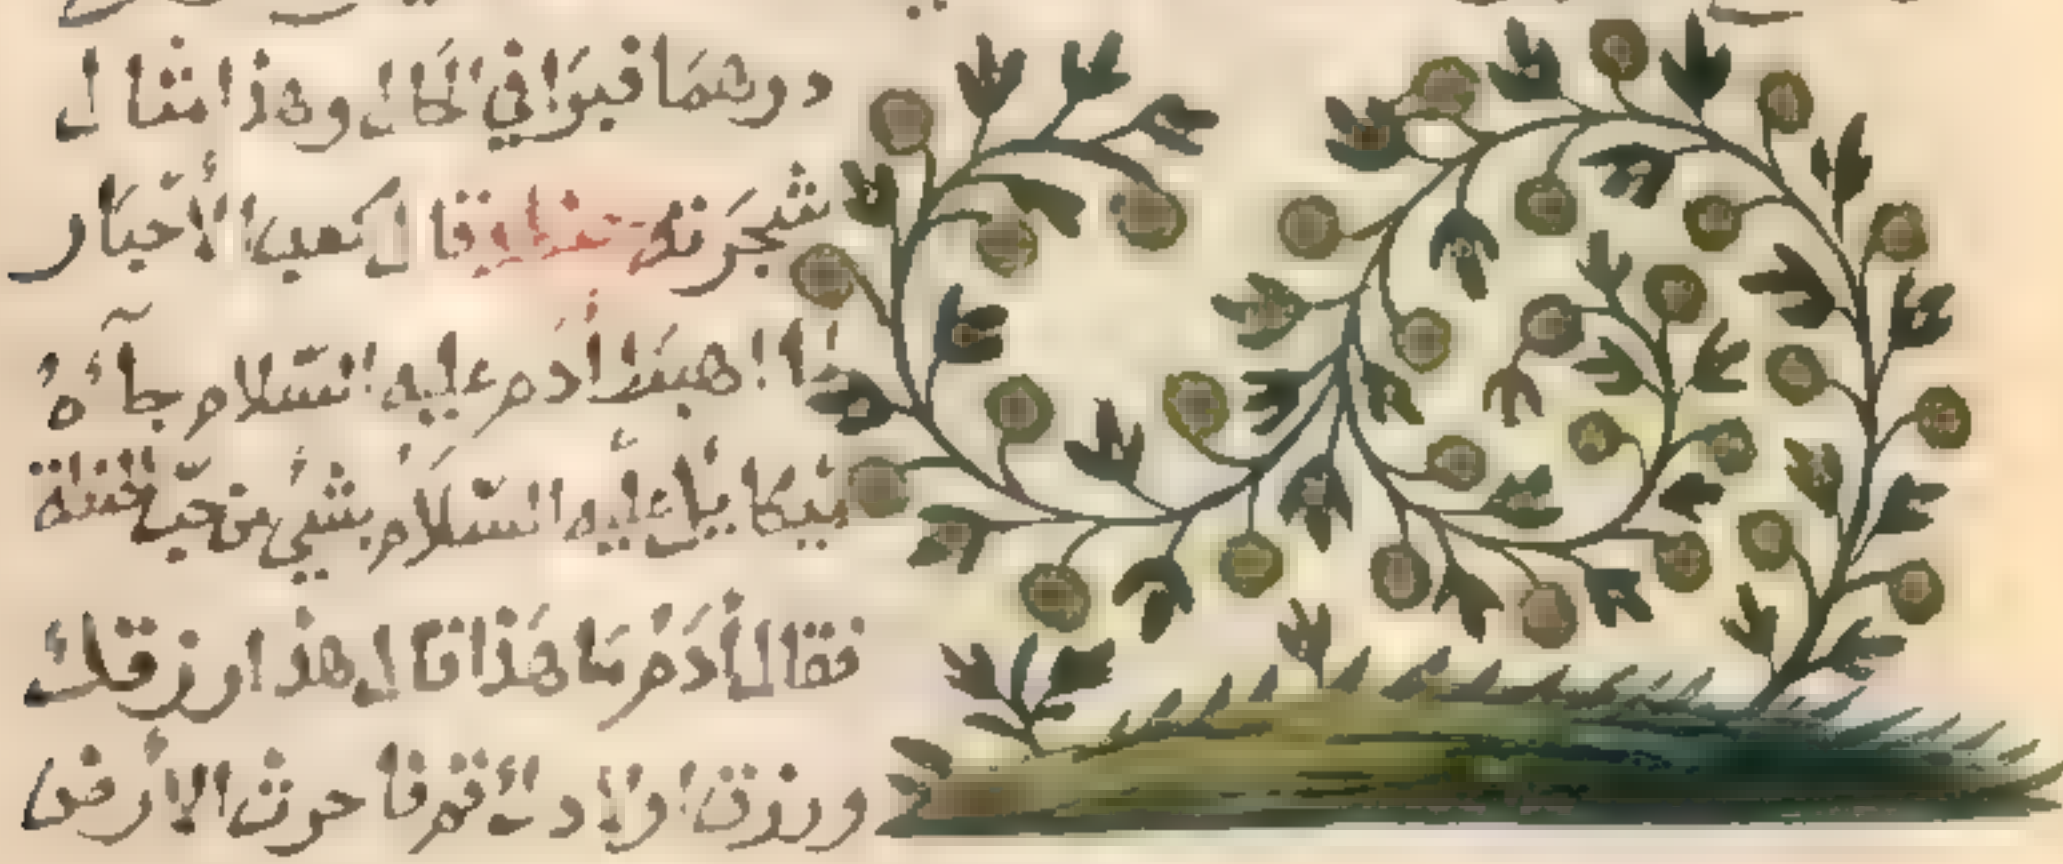 درهما فيبرا في الحال وهذا مثال
شجرته وقال كعب الأحبار
لما اهبط أدم عليه السلام جآءه
ميكاييل عليه السلام بشيء من حب الحنطة
فقال أدم ما هذا قال هذا رزقك
ورزق اولادك قم فاحرث الأرض